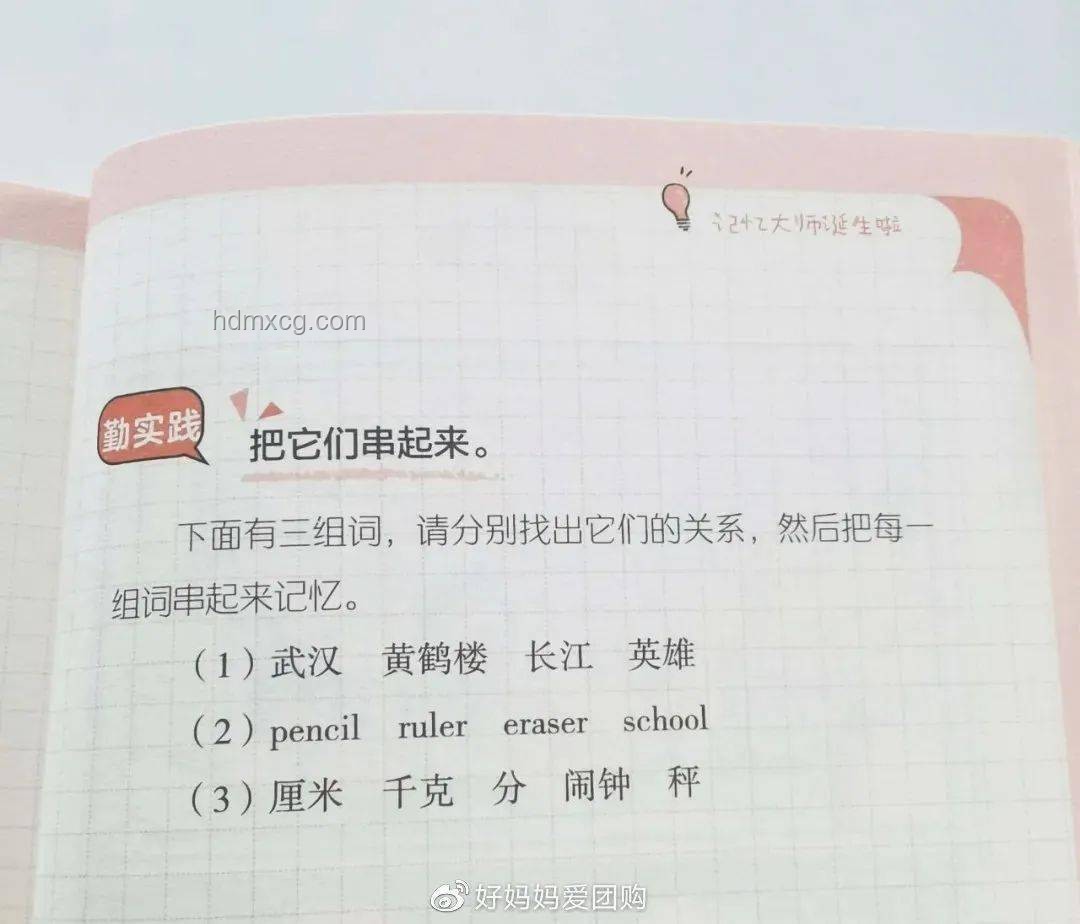 记忆大师诞生啦
hdmxcg.com
勤实践
把它们串起来。
下面有三组词，请分别找出它们的关系，然后把每一
组词串起来记忆。
（1）武汉 黄鹤楼 长江 英雄
（2）pencil ruler eraser school
（3）厘米 千克 分 闹钟 秤
好妈妈爱团购